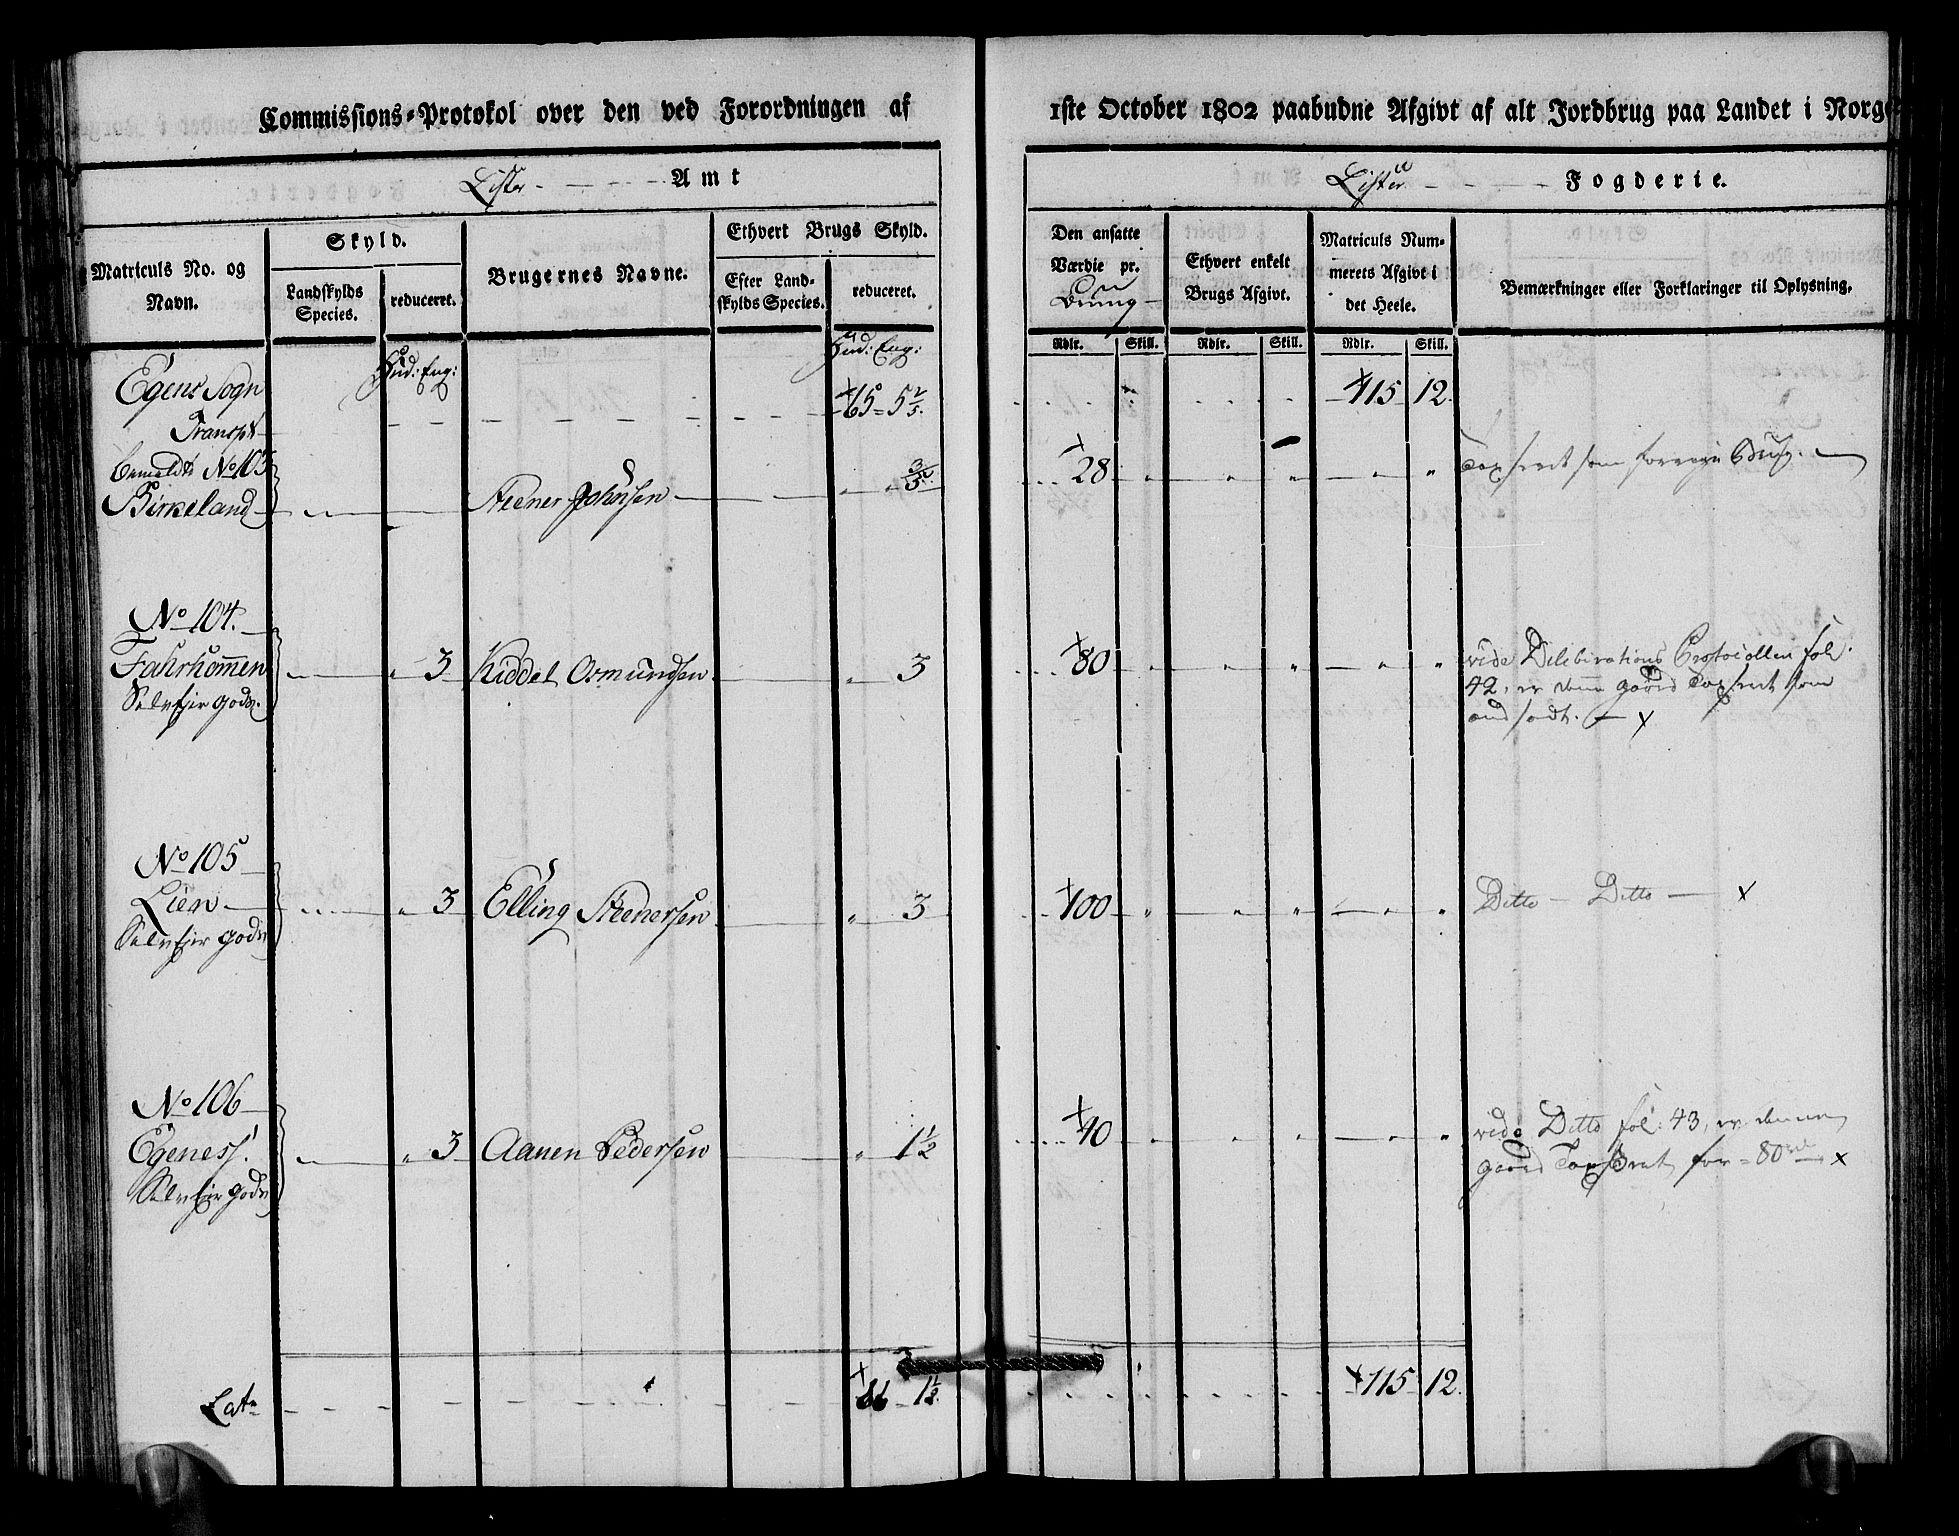 Commissions-Protokol over den ved Forordningen af 1ste October 1802 paabudne Afgivt af alt Jordbrug paa Landet i Norge
Lister Amt
Lister Fogderie.
Matriculs No. og Navn.
Skyld.
Landskylds Species.
reduceret.
Brugernes Navne.
Ethvert Brugs Skyld.
Efter Landskylds Species.
reduceret.
Den ansatte Værdie pr. Brug
Ethvert enkelt Brugs Afgivt.
Matriculs Nummerets Afgivt i det Heele.
Bemærkninger eller Forklaringer til Oplysning.
Rdlr. Skill. Rdlr. Skill. Rdlr. Skill.
Hud: Eng: Hud: Eng:
Egens Sogn
Transpt 65 = 5 2/5. 115 12.
bemeldte No 103
Birkeland Steener Johnsen 3/5 28 Taxeret som forrige Brug.
No 104.
Fahrhommen 3 Kiddel Osmundsen 3 80 vide Deliberations Protocollen fol.
Selvejer gods. 42, er denne gaard Taxeret som
andført. x
No 105
Lien 3 Elling Steenersen 3 100 Ditto Ditto x
Selvejer gods
No 106
Egeness. 3 Aanen Pedersen 1 1/2 40 vide Ditto fol: 43, er denne
Selvejer gods gaard Taxeret for = 80 rd x
Lat. 66 1 1/2. 115 12.